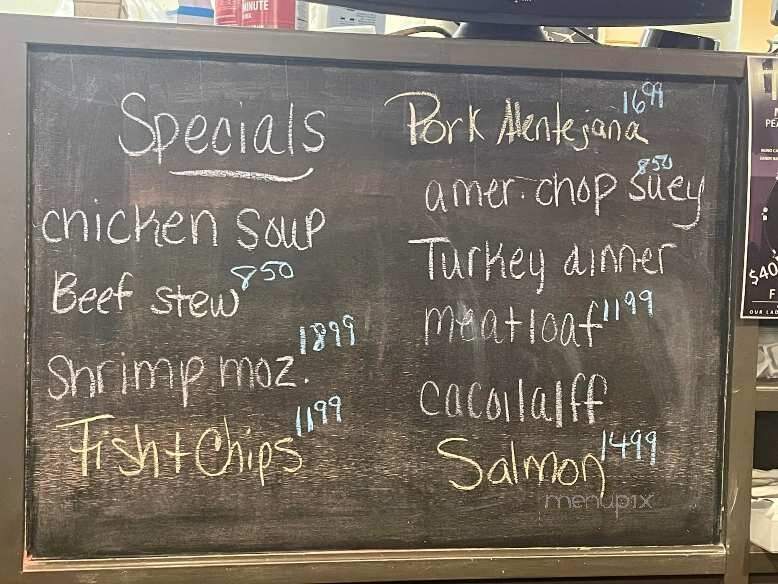 Specials
chicken soup
Beef stew 850
shrimp moz. 1899
Fish + Chips 1199
Pork Alentejana 1699
amer. chop suey 850
Turkey dinner
meatloaf 1199
cacoila/ff
Salmon 1499
menupix
MINUTE
$40
OUR LAD